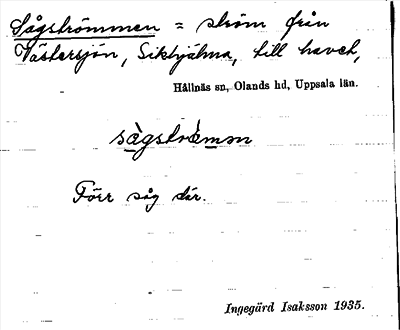 Sågströmmen = ström från
Västersjön, Sikhjälma, till havet,
Hållnäs sn, Olands hd, Uppsala län.
Förr såg där.
Ingegärd Isaksson 1935.